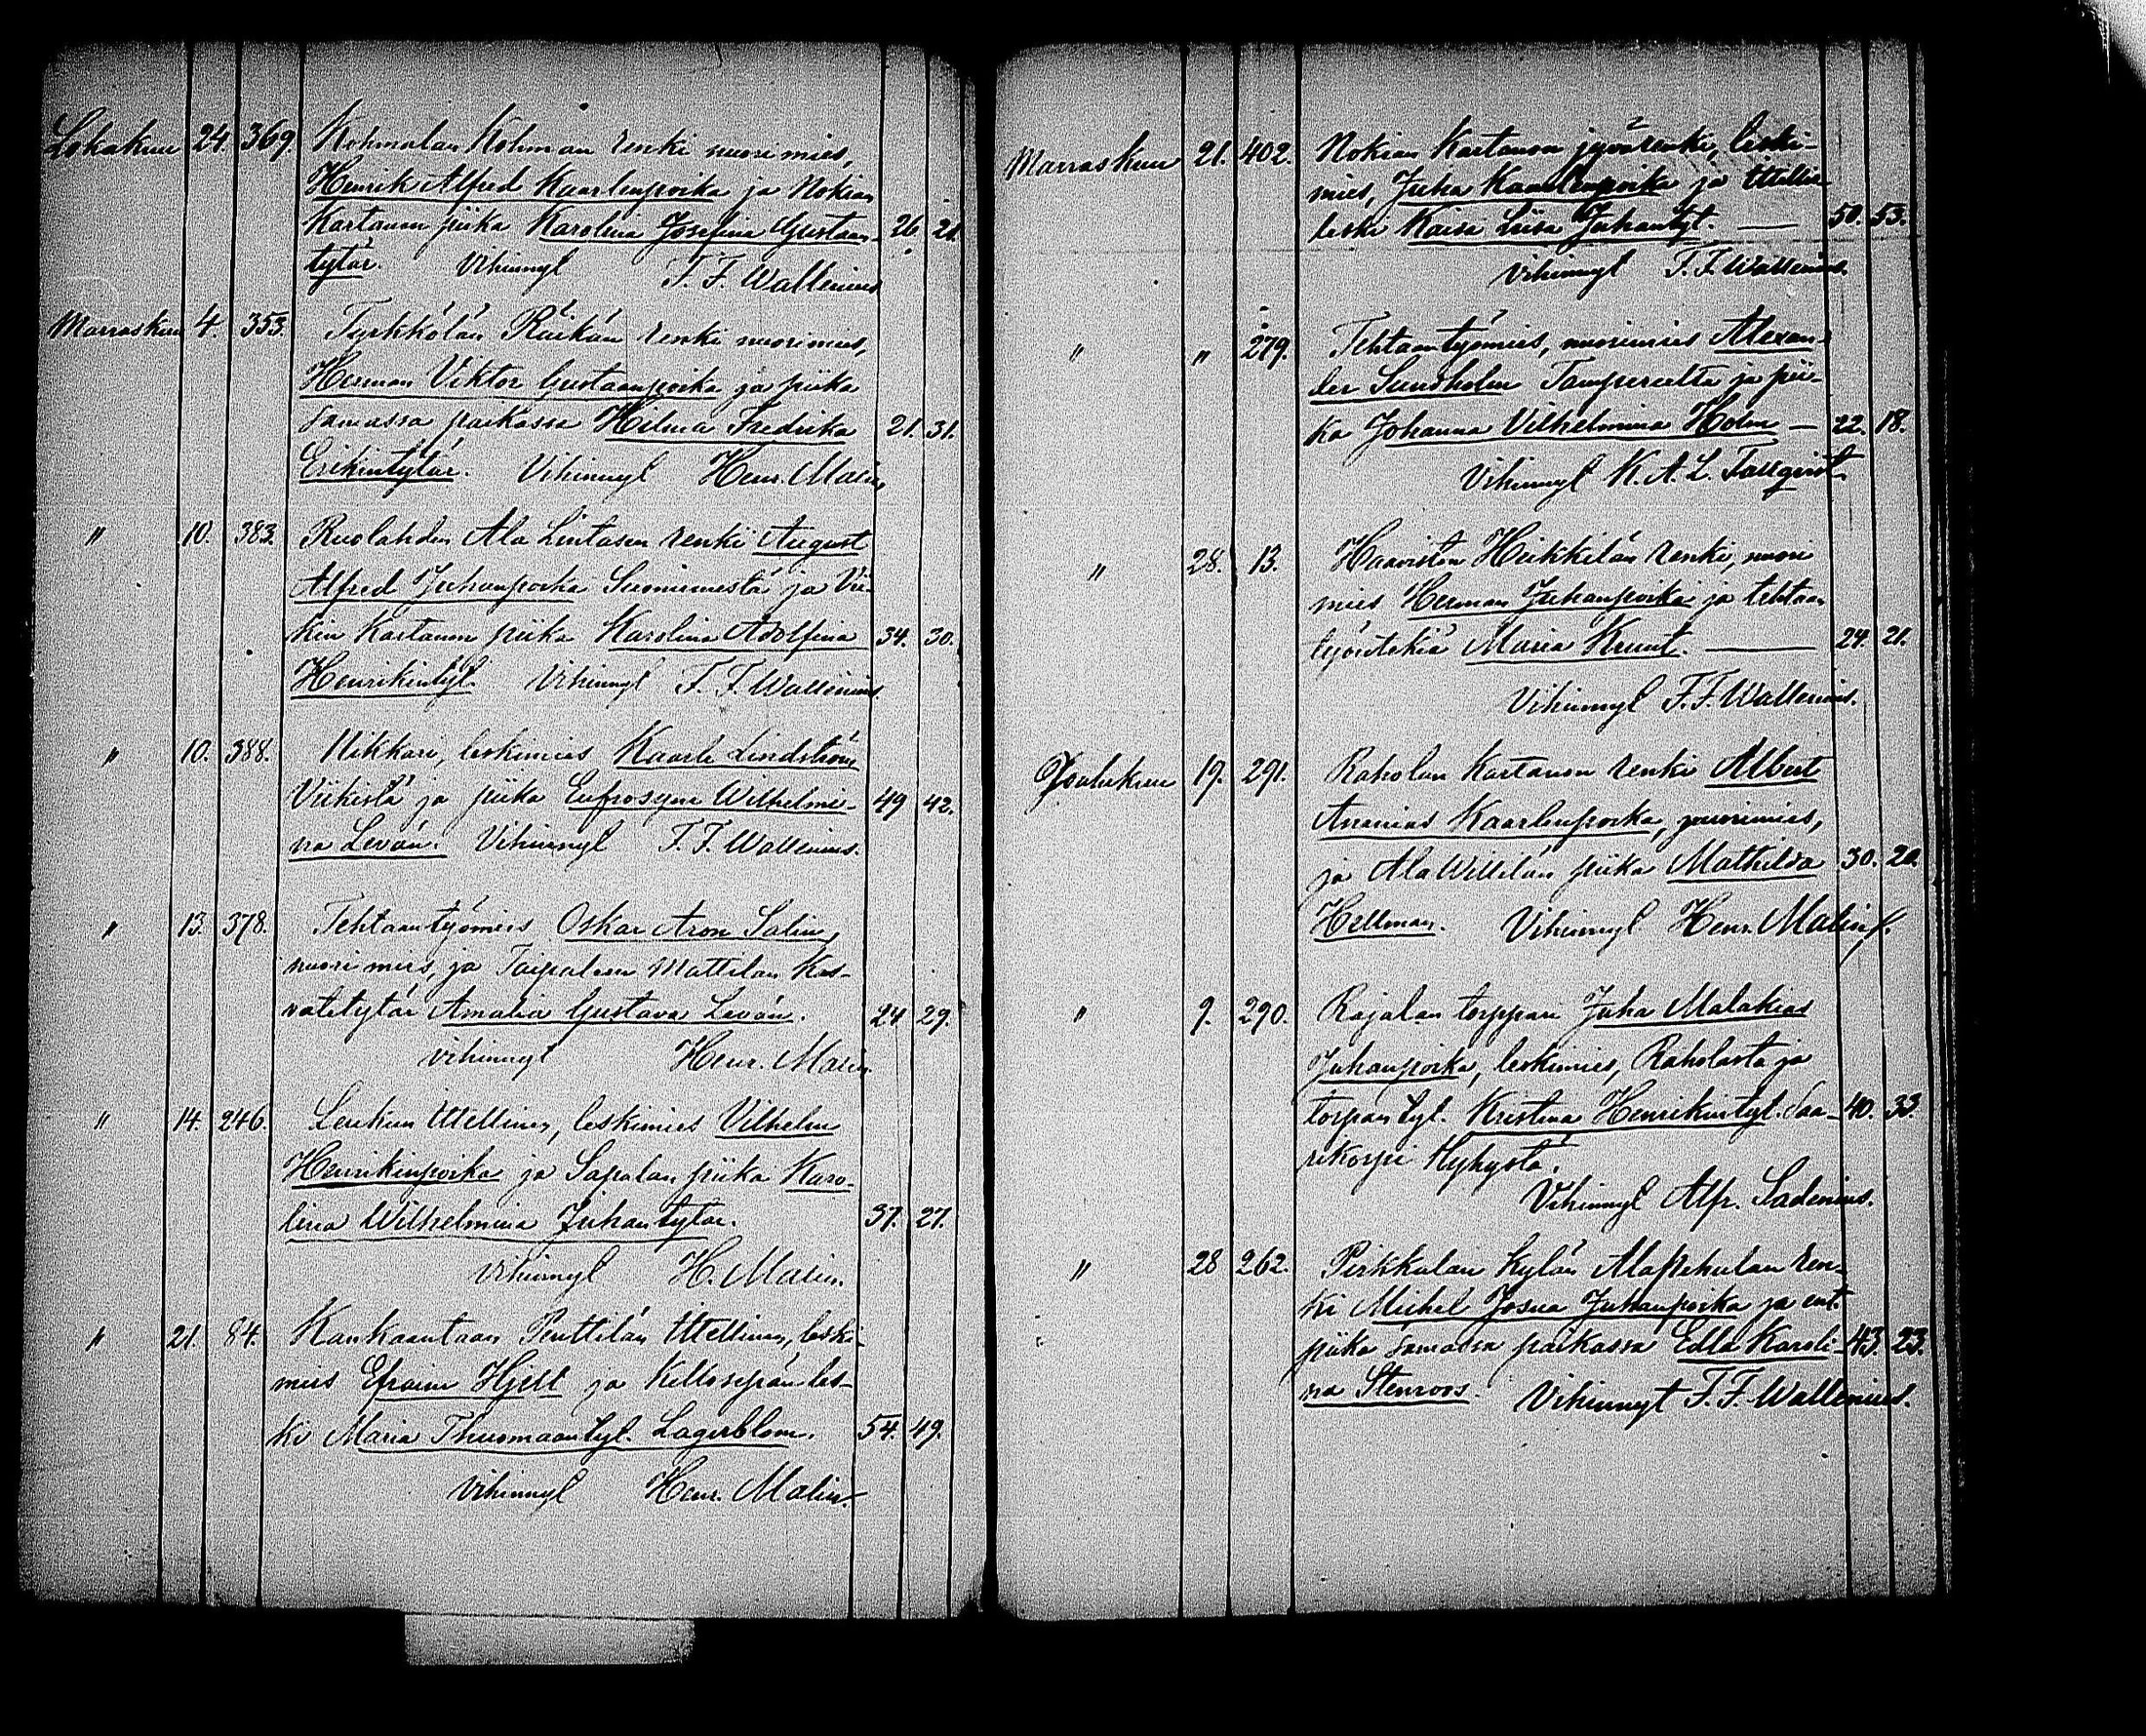 Lokakuu 24. 369. Kohmalan Kohman renki nuori mies,
Henrik Alfred Kaarlenpoika ja Nokian
Kartanon piika Karolina Josefina Gustaan- 26. 21.
tytär. Vihinnyt F. F. Wallenius
Marraskuu 4. 353. Tyrkkölän Räikän renki nuori mies,
Herman Viktor Gustaanpoika ja piika
samassa paikassa Hilma Fredrika 21. 31.
Erikintytär. Vihinnyt Henr. Malin
" 10. 383. Ruolahden Ala Lintusen renki August
Alfred Juhanpoika Suoniemestä ja Vii-
kin Kartanon piika Karolina Adolfina 34. 30.
Henrikintyt. Vihinnyt F. F. Wallenius
" 10. 388. Nikkari, leskimies Kaarle Lindström
Viikistä ja piika Eufrosyne Wilhelmi- 49 42.
na Levón. Vihinnyt F. F. Wallenius.
" 13. 378. Tehtaantyömies Oskar Aron Salin,
nuori mies, ja Taipaleen Mattilan Kas-
vattitytär Amalia Gustava Levón. 24 29.
Vihinnyt Henr. Malin
" 14. 246. Leukun Itellinen, leskimies Vilhelm
Henrikinpoika ja Sapalan piika Karo-
lina Wilhelmina Juhantytär. 37. 27.
Vihinnyt H. Malin.
" 21. 84. Kankaantaan Penttilän Itellinen, leski-
mies Efraim Hjelt ja Killosepän les-
ki Maria Thuomaantyt. Lagerblom. 54. 49.
Vihinnyt Henr. Malin.
Marraskuu 21. 402. Nokian Kartanon jyvärenki, leski-
mies, Juha Kaarlenpoika ja Itellis-
leski Kaisa Liisa Juhantyt. — 50. 53.
Vihinnyt F. F. Wallenius.
" " 279. Tehtaantyömies, nuorimies Alexan-
der Sundholm Tampereelta ja pii-
ka Johanna Vilhelmina Holm — 22. 18.
Vihinnyt K. A. L. Tallqvist.
" 28. 13. Haaviston Heikkilän renki, nuori
mies Herman Juhanpoika ja tehtaan
työntekiä Maria Kruut. — 24. 21.
Vihinnyt F. F. Wallenius.
Joulukuu 19. 291. Raholan Kartanon renki Albert
Ananias Kaarlenpoika, nuorimies,
ja Ala Willilän piika Mathilda 30. 20.
Hellman. Vihinnyt Henr. Malin.
" 9. 290. Rajalan torppari Juha Malakias
Juhanpoika, leskimies, Raholasta ja
torpantyt. Kristina Henrikintyt. Saa- 40. 33.
rikorpi Hyhystä.
Vihinnyt Alfr. Sadenius.
" 28 262. Pirkkalan Kylän Alapehulan ren-
ki Michel Josua Juhanpoika ja ent.
piika samassa paikassa Edla Karoli- 43. 23.
na Stenroos. Vihinnyt F. F. Wallenius.